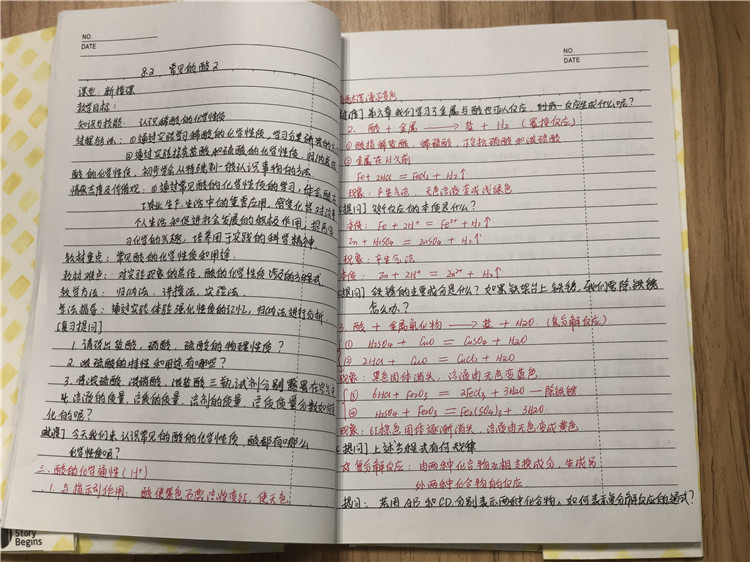 NO.
DATE
8.2. 常见的酸2
课型：新授课
教学目标：
知识与技能：认识稀酸的化学性质
过程与方法：①通过实验学习稀酸的化学性质，学习分里
②通过实验探究盐酸和硫酸的化学性质，归纳
酸的化学性质，初步学会从特殊到一般认识事物的方法。
情感态度及价值观：①通过常见酸的化学性质的学习，体会酸在
工农业生产、生活中的重要应用，感受化学对改善
个人生活和促进社会发展的积极作用，提高学
习化学的兴趣，培养勇于实践的科学精神
教材重点：常见酸的化学性质和用途。
教材难点：对实验现象的总结，酸的化学性质涉及的方程式
教学方法：归纳法、讲授法、实验法。
学法指导：通过实验体验强化性质的记忆，归纳法进行分析
[复习提问]
1. 请说出盐酸，硝酸，硫酸的物理性质？
2. 浓硫酸的特性和用途有哪些？
3. 将浓硫酸，浓硝酸，浓盐酸三瓶试剂分别露置在空气中
4. 溶液的质量，溶质的质量，溶剂的质量，溶质质量分数如何变
化的呢？
[过渡] 今天我们来认识常见的酸的化学性质，酸都有哪些
化学性质呢？
三. 酸的化学通性 (H⁺)
1. 与指示剂作用：酸使紫色石蕊溶液变红，使无色
Story
Begins
NO.
DATE
[过渡] 第六章我们学习了金属与酸也可以反应，到底反应生成什么呢？
2. 酸 + 金属 ⟶ 盐 + H₂ (置换反应)
①酸指稀盐酸，稀硫酸，不包括硝酸和浓硫酸
②金属在H之前
Fe + 2HCl = FeCl₂ + H₂↑
现象：产生气泡，无色溶液变成浅绿色
[提问] 这个反应的本质是什么？
本质：Fe + 2H⁺ = Fe²⁺ + H₂↑
Zn + H₂SO₄ = ZnSO₄ + H₂↑
现象：产生气泡
本质：Zn + 2H⁺ = Zn²⁺ + H₂↑
[提问] 铁锈的主要成分是什么？如果铁架台上铁锈，我们要除铁锈
怎么办？
3. 酸 + 金属氧化物 ⟶ 盐 + H₂O (复分解反应)
① H₂SO₄ + CuO = CuSO₄ + H₂O
② 2HCl + CuO = CuCl₂ + H₂O
现象：黑色固体消失，溶液由无色变蓝色
③ 6HCl + Fe₂O₃ = 2FeCl₃ + 3H₂O — 除铁锈
④ H₂SO₄ + Fe₂O₃ = Fe₂(SO₄)₃ + 3H₂O
现象：红棕色固体逐渐消失，溶液由无色变成黄色
[提问] 上述方程式有何规律
复分解反应：由两种化合物互相交换成分，生成另
外两种化合物的反应
提问：若用AB和CD分别表示两种化合物，如何表示复分解反应的通式？